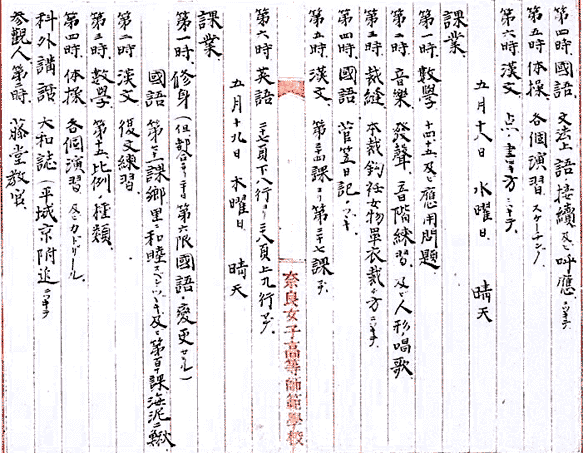 第四時 國語 文法上語ノ接續及ビ呼應ニツキテ
第五時 体操 各個演習、スケーチング
第六時 漢文
五月十八日 水曜日 晴天
課業
第一時、數學 十四、十五及ビ應用問題
第二時、音樂 發聲、音階練習、及ビ人形ノ唱歌
第三時 裁縫 本裁 女物單衣裁チ方ニツキテ
第四時、國語 菅笠日記
第五時、漢文 第三十四課ヨリ第三十七課マデ
第六時 英語 三七頁下八行ヨリ三八頁上九行マデ
五月十九日 木曜日 晴天
課業
第一時、修身 (但部合ニヨリテ第六限國語ト変更セラル)
國語 第 課鄉里ニ和睦スベシ 及ビ第百十課海泥ニ
第二時 漢文 復文練習
第三時、數學 第十五、比例ノ種類
第四時、体操 各個演習 及ビカドリール
科外講話 大和誌(平城京附近ニツキテ)
參觀人、第三時、藤堂教官
奈良女子高等師範學校